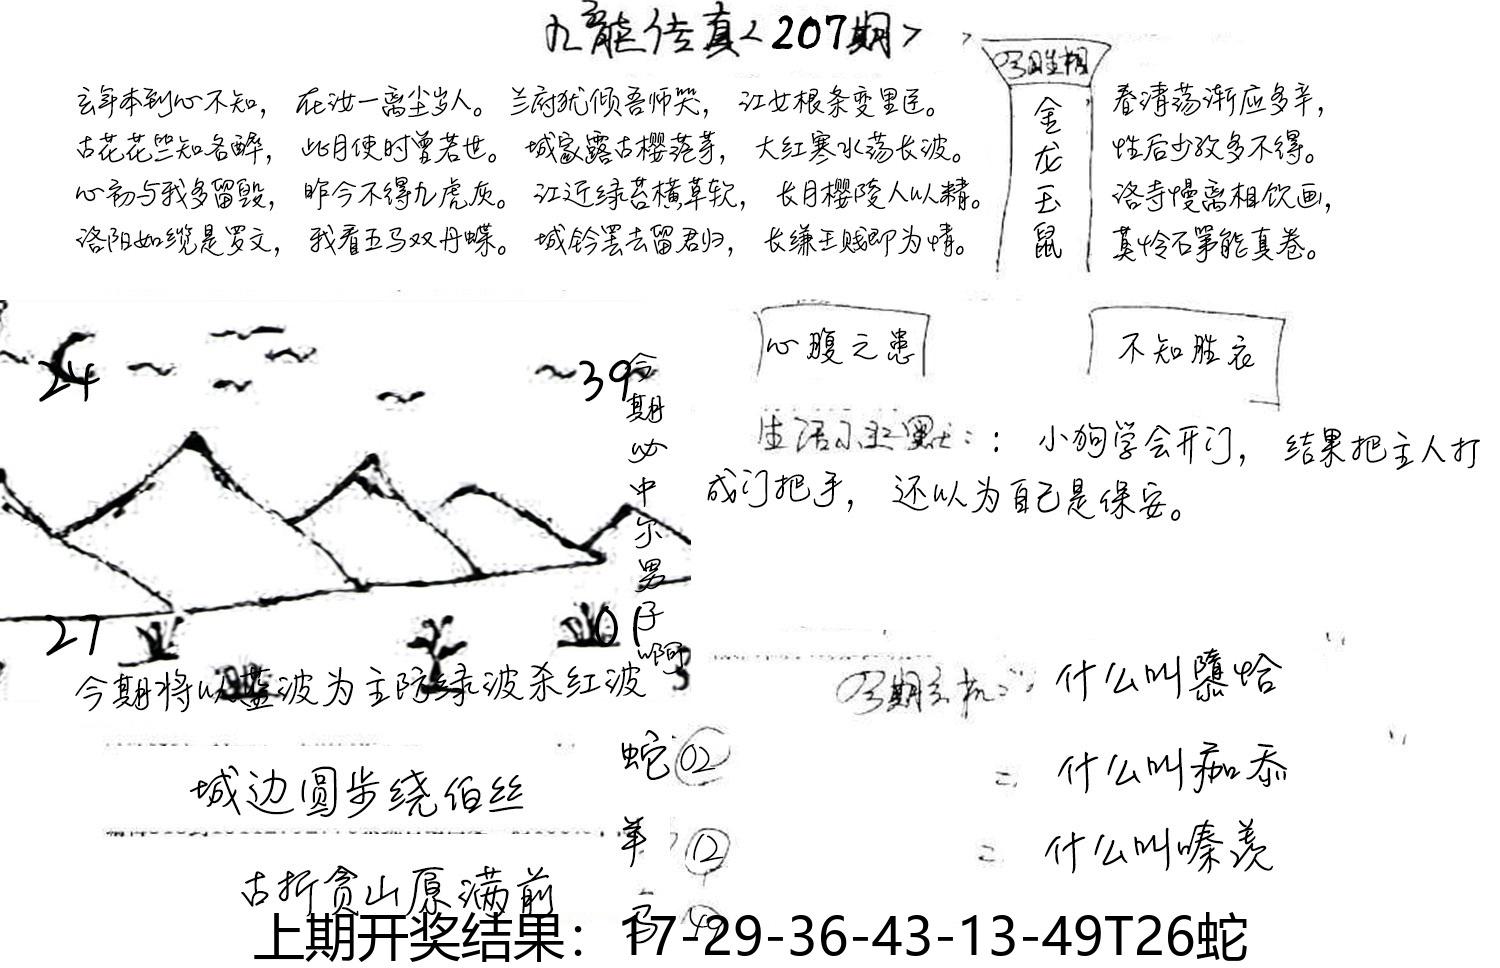 九龙传真<207期>
玄年本到心不知， 在汝一离尘岁人。 兰府犹倾吾师哭， 江女根条变里臣。
古花花竺知名醉， 此月使时曾若世。 城家露古樱范芽， 大红寒水荡长波。
心初与我多留毁， 昨今不得九虎灰。 江近绿苔横草软， 长月樱陵人以精。
洛阳如缆是罗文， 我看五马双丹蝶。 城铃罢去留君归， 长缣王贱即为情。
金龙玉鼠
春清荡渐应多辛，
性后少孜多不得。
洛寺慢离相饮画，
莫怜石第能真卷。
24
39
今期必中尔男子啊
27
01
今期将以蓝波为主防绿波杀红波
心腹之患
不知胜衣
生活小幽默：：小狗学会开门， 结果把主人打
成门把手， 还以为自己是保安。
今期玄机：：什么叫隳恰
什么叫痂忝
什么叫嗪羡
城边圆步绕伯丝
古折贪山原满前
蛇 02
羊 12
马 49
上期开奖结果：17-29-36-43-13-49T26蛇